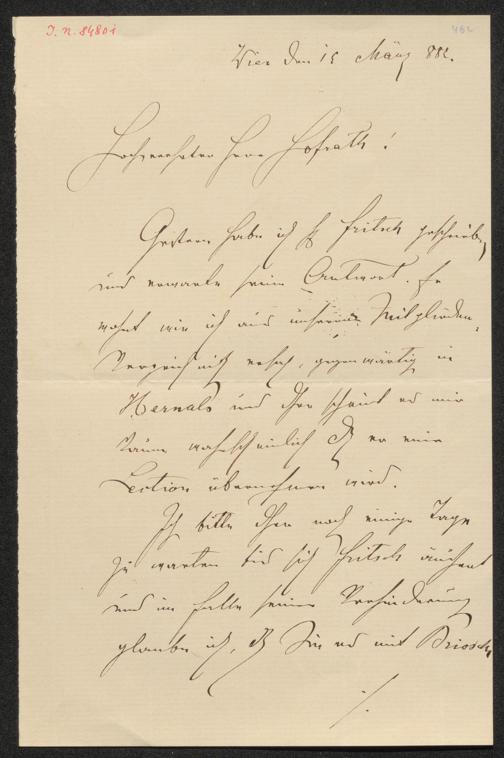 J. N. 84801
462
Wien den 15 März 882.
Hochverehrter Herr Hofrath!
Gestern habe ich Fritsch geschrieben
und erwarte seine Antwort. Er
wohnt wie ich aus unserem Mitglieder-
Verzeichniß ersah, gegenwärtig in
Hernals und scheint es mir
kaum wahrscheinlich daß er eine
Lection übernehmen wird.
Ich bitte noch einige Tage
zu warten bis sich Fritsch äußert
und im Falle seiner Verhinderung
glaube ich, daß Sie es mit Briosch
./.